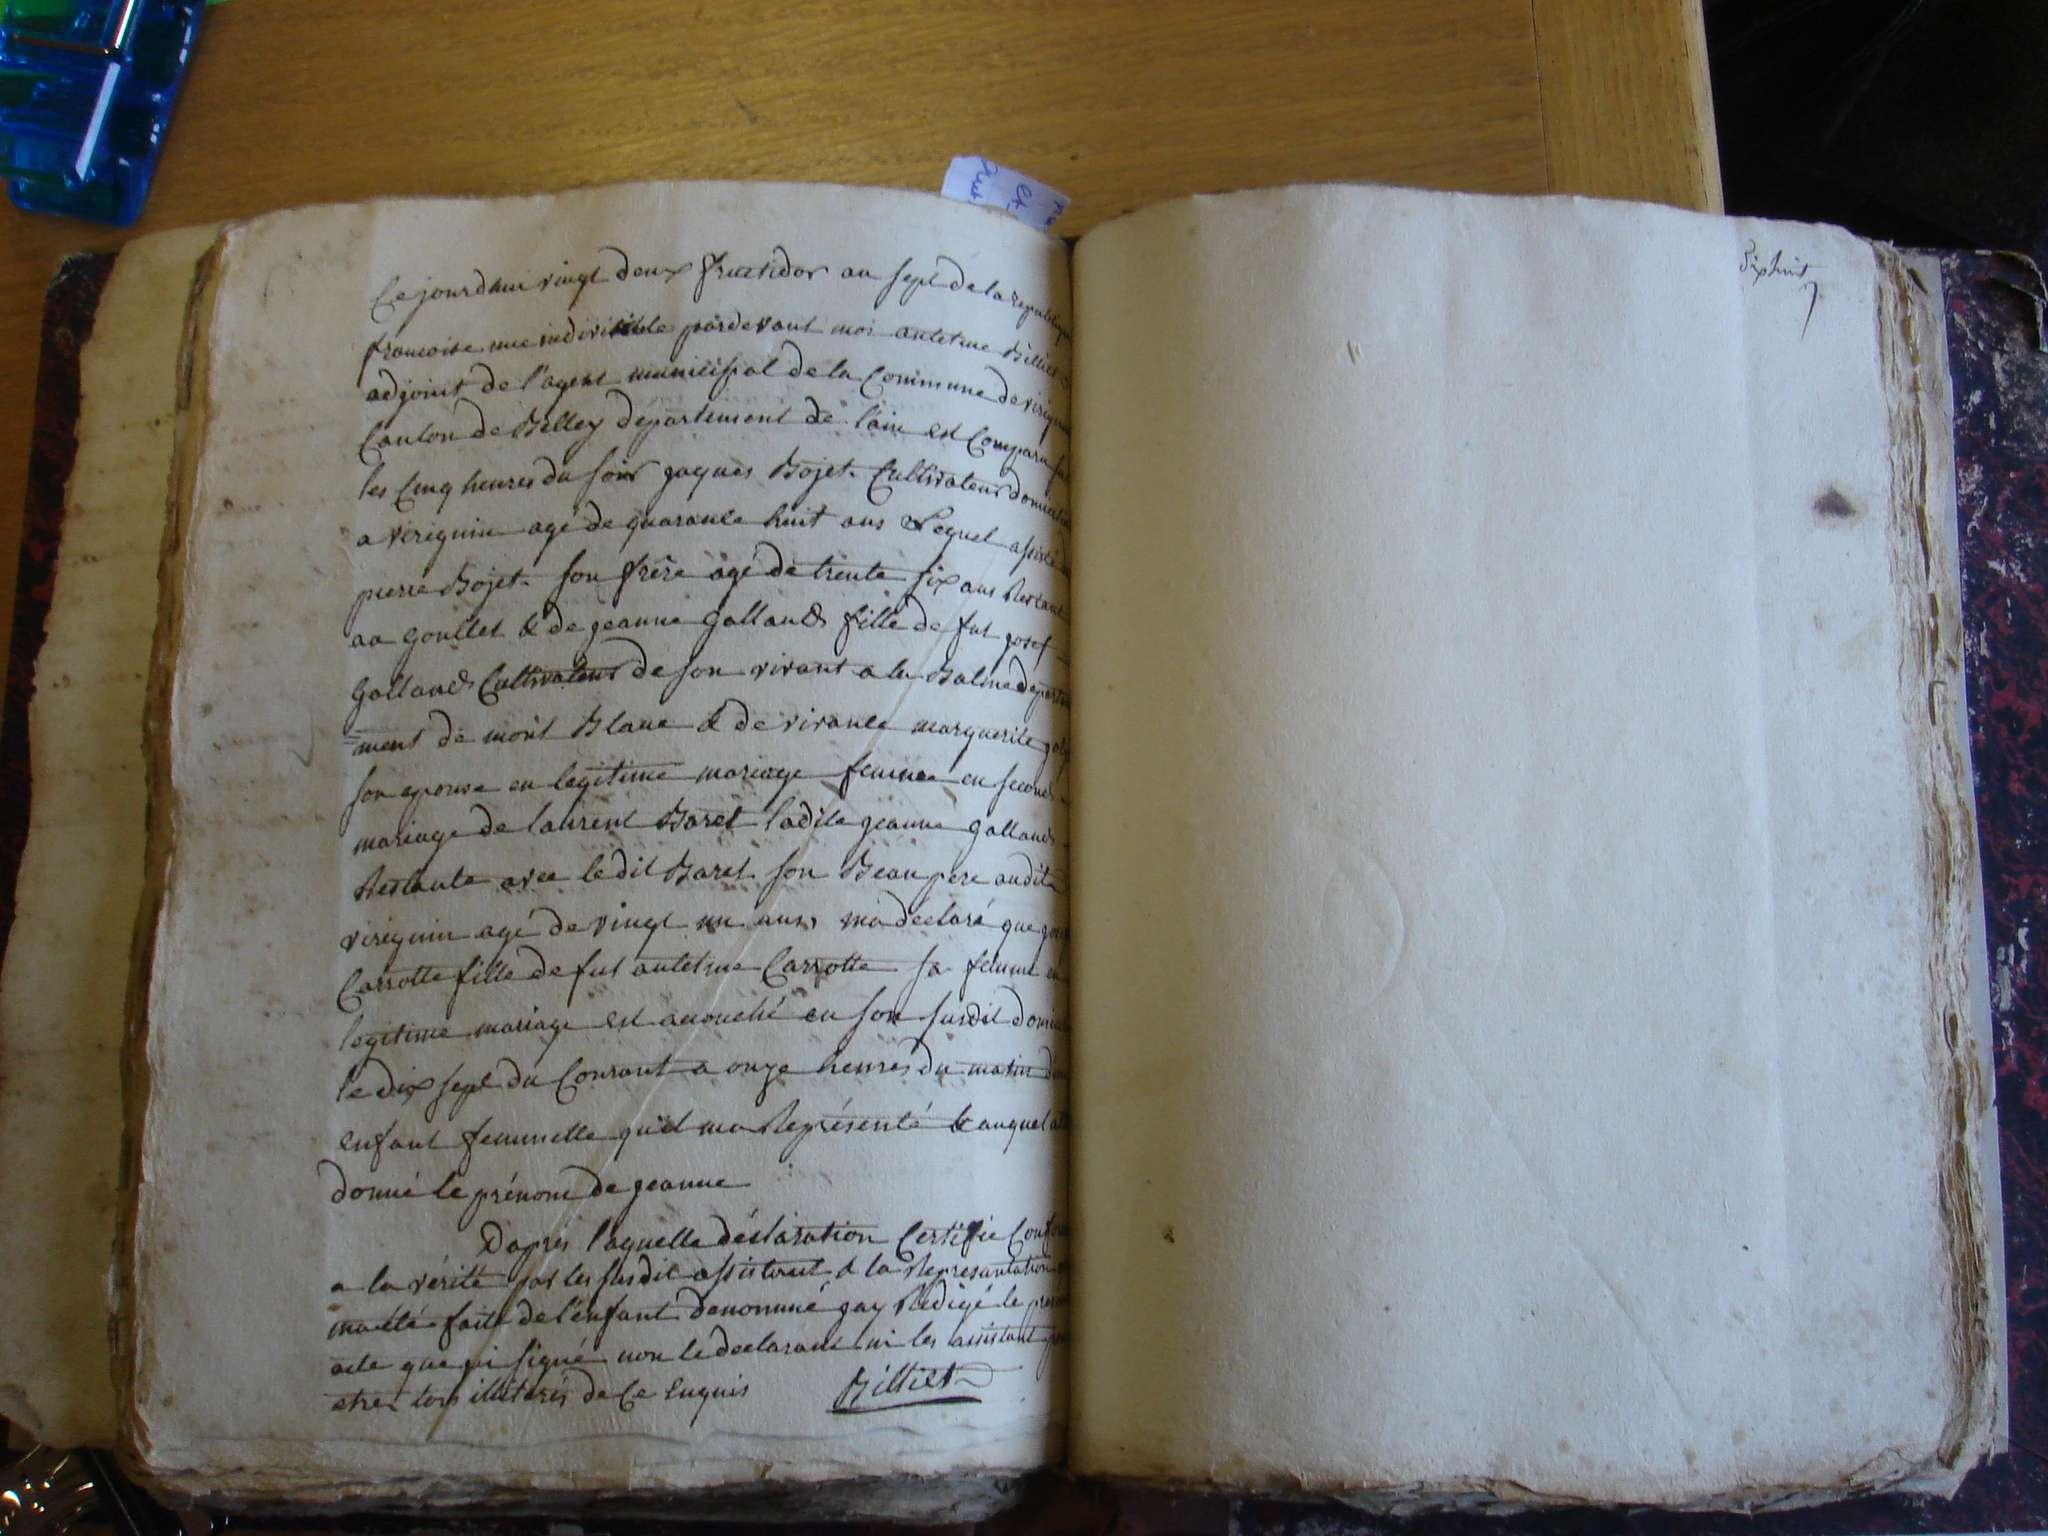 Cejourdhui vingt deux fructidor an sept de la republique
francoise une indivisible pardevant moi antelme Billiet
adjoint de l'agent municipal de la Commune de virignin
Canton de Belley departement de l'ain est Comparu sur
les Cinq heures du soir jaques Bojet Cultivateur domicilié
a virignin agé de quarante huit ans Lequel assisté de
pierre Bojet son frère agé de trente six ans Restant
au & de jeanne Galland fille de fut josef
Galland Cultivateur de son vivant a la Balme departe
=ment de mont Blanc & de vivante marguerite
son epouse en legitime mariage femme en second
mariage de laurent Baret ladite jeanne Galland
Restante avec le dit Baret son Beau pere audit
virignin agé de vingt un ans, ma déclaré que
Carrotte fille de fut antelme Carrotte sa femme en
legitime mariage est acouché en son susdit domicile
le dix sept du Courant a onze heures du matin d'un
enfant femmelle quil ma Représenté & auquel
donné le prénom de jeanne
Daprés laquelle déclaration Certifiée Conforme
a la vérité par les susdit assistant & la Represantation
ma été faite de l'enfant denommé jay Rédigé le present
acte que jai signé non le declarant ni les assistant pour
etre tous illiterés de Ce Enquis Billiet